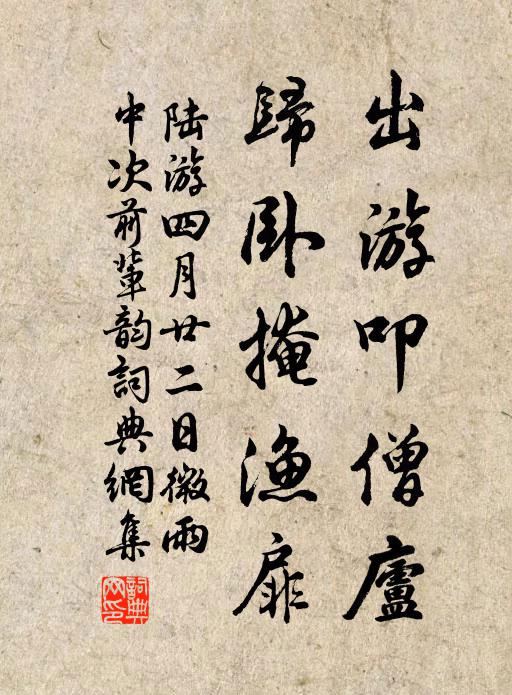 出游叩僧廬
歸卧掩漁扉
陆游四月廿二日微雨
中次前輩韵詞典網集
詞典
网印